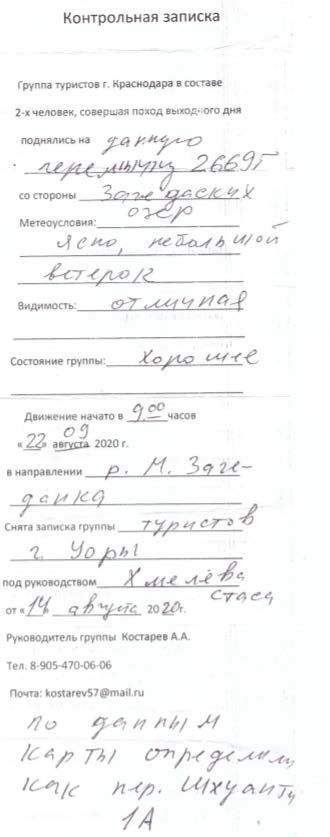 Контрольная записка
Группа туристов г. Краснодара в составе
2-х человек, совершая поход выходного дня
поднялись на данную
перемычку 2669
со стороны Загеданских
озёр
Метеоусловия:
Ясно, небольшой
ветерок
Видимость: отличная
Состояние группы: Хорошее
Движение начато в 9,00 часов
09
«22» августа 2020 г.
в направлении р. М. Заге-
данка
Снята записка группы туристов
г.
под руководством Хмелёва
Стаса
от «14» августа 2020г.
Руководитель группы Костарев А.А.
Тел. 8-905-470-06-06
Почта: kostarev57@mail.ru
по данным
карты определили
как пер.
1А